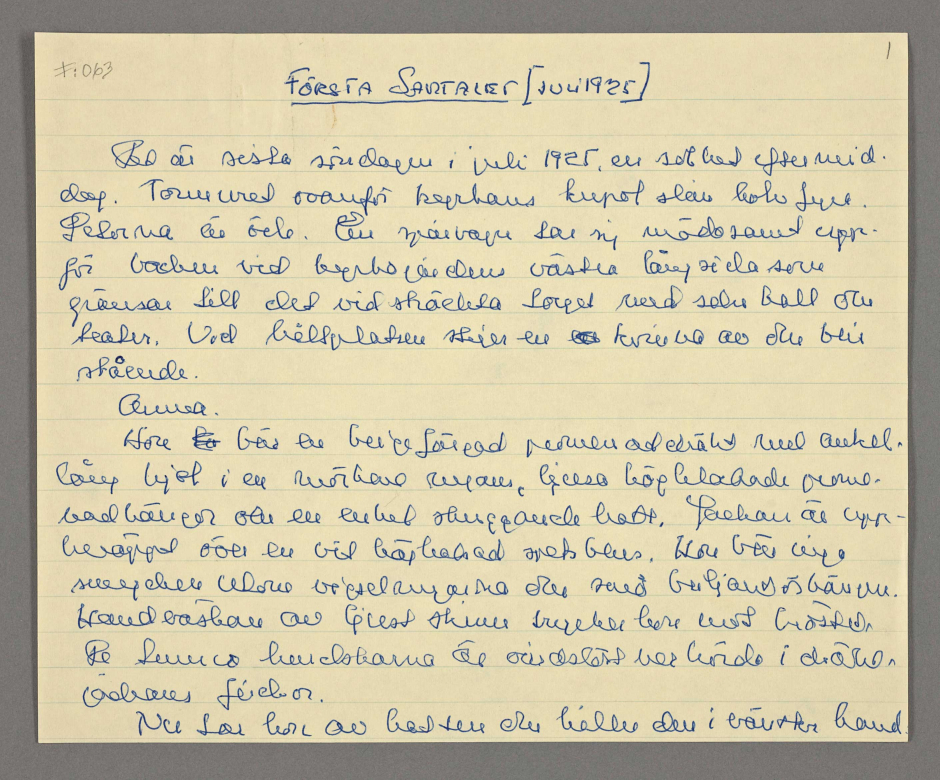 F:063
1
FÖRSTA SAMTALET [JULI 1925]
Det är sista söndagen i juli 1925, en solhet eftermid-
dag. Tornuret ovanför kyrkans kupol slår halv fyra.
Gatorna är öde. En spårvagn tar sig mödosamt upp-
för backen vid kyrkogårdens västra långsida som
gränsar till det vidsträckta torget med saluhall och
teater. Vid hållplatsen stiger en kvinna av och blir
stående.
Anna.
Hon bär en beigefärgad promenaddräkt med ankel-
lång kjol i en mörkare nyans, ljusa högklackade prome-
nadkängor och en enkel skuggande hatt. Jackan är upp-
knäppt över en vit höghalsad spetsblus. Hon bär inga
smycken utom vigselringarna och små briljantörhängen.
Handväskan av ljust skinn trycker hon mot bröstet.
De tunna handskarna är vårdslöst nerkörda i dräkt-
jackans fickor.
Nu tar hon av hatten och håller den i vänster hand.